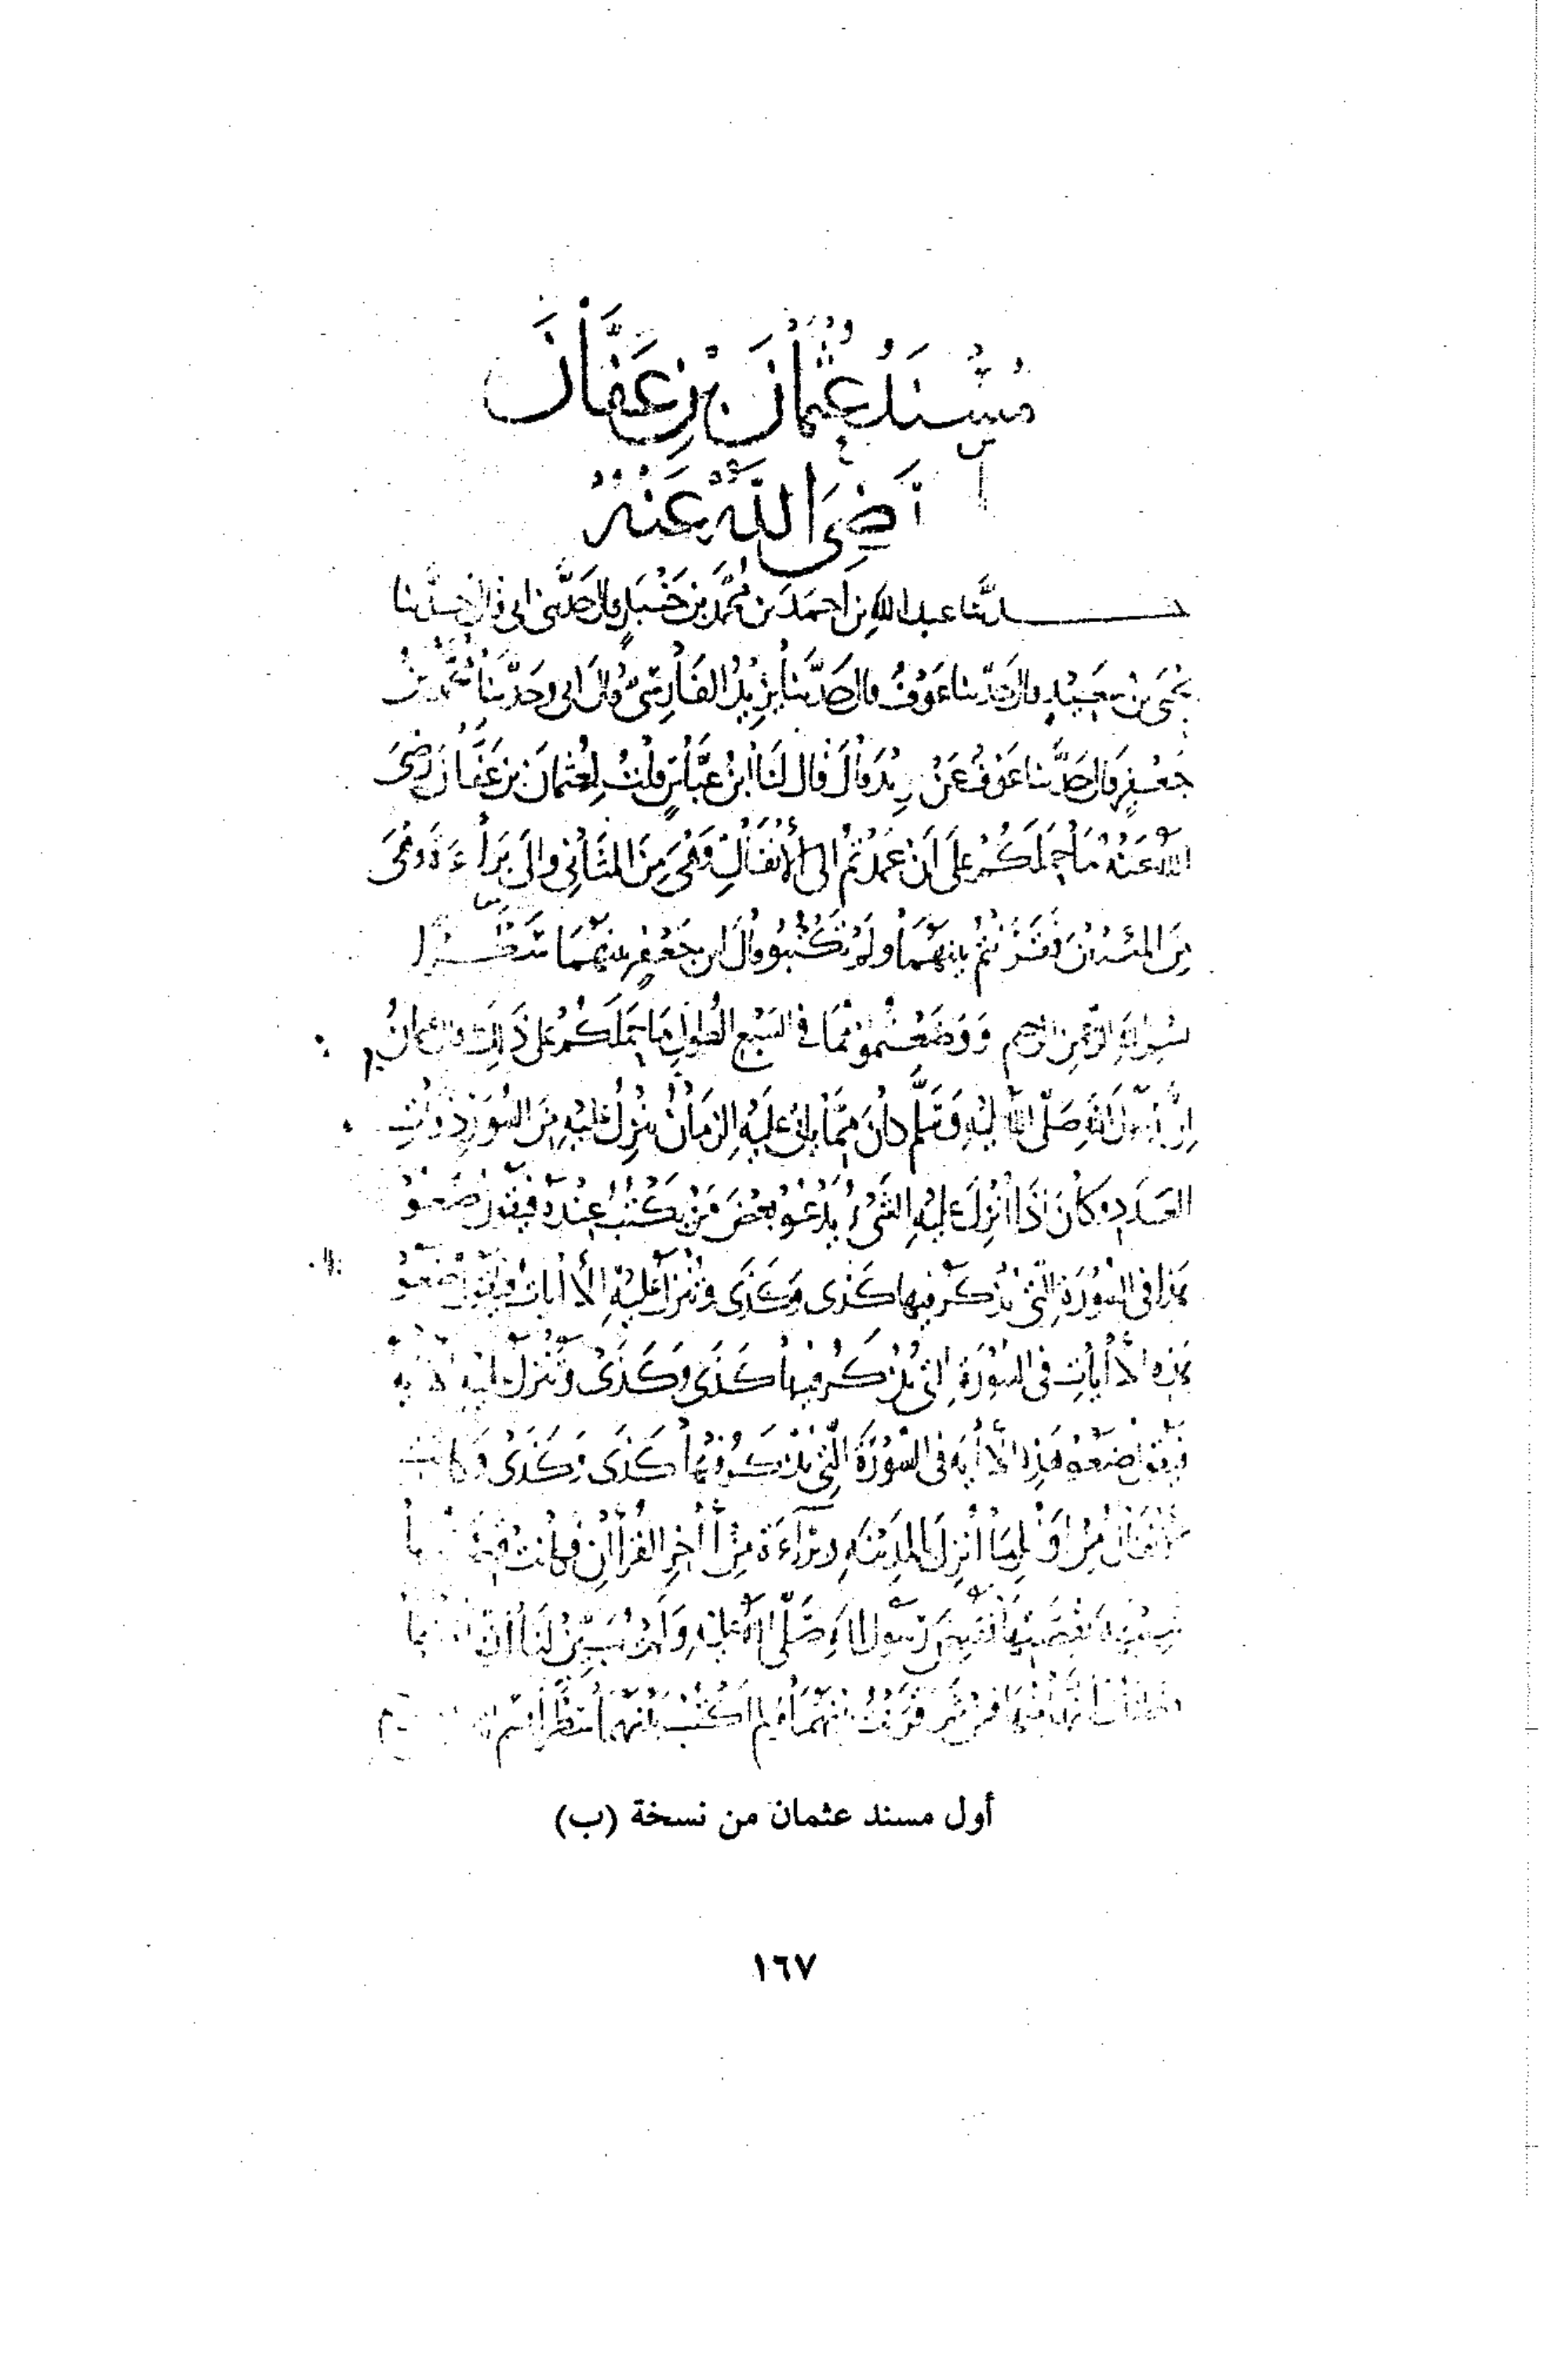 مُسْنَدُ عُثْمَانَ بْنِ عَفَّانَ
رَضِيَ اللَّهُ عَنْهُ
حدثنا عبد الله بن احمد بن محمد بن حنبل قال حدثني ابي قال حدثنا
يحيى بن سعيد قال حدثنا عوف قال حدثنا يزيد الفارسي قال ابي وحدثنا محمد بن
جعفر قال حدثنا عوف عن يزيد قال قال لنا ابن عباس قلت لعثمان بن عفان رضي
الله عنه ما حملكم على ان عمدتم الى الأنفال وهي من المثاني والى براءة وهي
من المئين فقرنتم بينهما ولم تكتبو قال ابن جعفر بينهما سطرا
بسم الله الرحمن الرحيم ووضعتموها في السبع الطول ما حملكم على ذلك قال عثمان
ان رسول الله صلى الله عليه وسلم كان مما ياتي عليه الزمان ينزل عليه من السور ذوات
العدد وكان اذا انزل عليه الشيء يدعو بعض من يكتب عنده فيقول ضعو
هذا في السورة التي يذكر فيها كذى وكذى وتنزل عليه الأايات فيقول ضعو
هذه الأايات في السورة التي يذكر فيها كذى وكذى وتنزل عليه الأاية
فيقول ضعو هذه الأاية في السورة التي يذكر فيها كذى وكذى وكانت
الأنفال من اوائل ما أنزل بالمدينه وبراءة من أاخر القرأان فكانت
قصتها رسول الله صلى الله عليه ولم يبين لنا انها
منها فمن ثم قرنت بينهما ولم اكتب بينهما سطرا بسم
أول مسند عثمان من نسخة (ب)
١٦٧